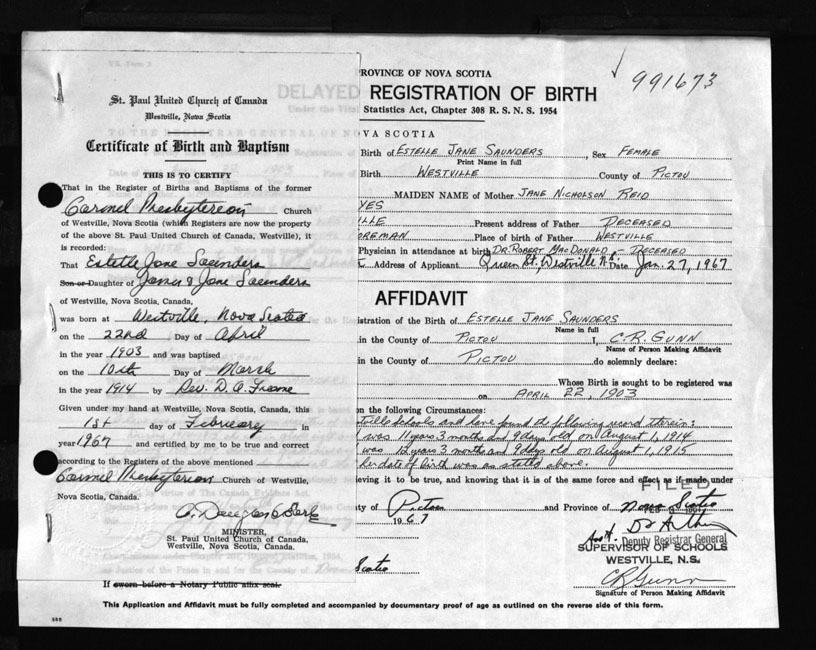 St. Paul United Church of Canada
Westville, Nova Scotia
Certificate of Birth and Baptism
THIS IS TO CERTIFY
That in the Register of Births and Baptisms of the former
Carmel Presbyterian Church
of Westville, Nova Scotia (which Registers are now the property
of the above St. Paul United Church of Canada, Westville), it
is recorded:
That Estelle Jane Saunders
Son or Daughter of James & Jane Saunders
of Westville, Nova Scotia, Canada,
was born at Westville, Nova Scotia
on the 22nd Day of April
in the year 1903 and was baptised
on the 10th Day of March
in the year 1914 by Rev. D. A.
Given under my hand at Westville, Nova Scotia, Canada, this
1st day of February in
year 1967 and certified by me to be true and correct
according to the Registers of the above mentioned
Carmel Presbyterian Church of Westville,
Nova Scotia, Canada.
MINISTER,
St. Paul United Church of Canada,
Westville, Nova Scotia, Canada.
If sworn before a Notary Public affix seal.
991673
ROVINCE OF NOVA SCOTIA
DELAYED REGISTRATION OF BIRTH
Statistics Act, Chapter 308 R. S. N. S. 1954
VA SCOTIA
Birth of ESTELLE JANE SAUNDERS, Sex FEMALE
Print Name in full
Birth WESTVILLE County of PICTOU
MAIDEN NAME of Mother JANE NICHOLSON REID
YES
ILLE Present address of Father DECEASED
OREMAN Place of birth of Father WESTVILLE
Physician in attendance at birth DR. ROBERT MACDONALD - DECEASED
Address of Applicant Queen St., Westville N.S. Date Jan. 27, 1967
AFFIDAVIT
istration of the Birth of ESTELLE JANE SAUNDERS
Name in full
in the County of PICTOU I, C. R. GUNN
Name of Person Making Affidavit
in the County of PICTOU do solemnly declare:
Whose Birth is sought to be registered was
on APRIL 22, 1903
n the following Circumstances:
tville schools and have found the following record therein:
was 11 years 3 months and 9 days old on August 1, 1914
was 12 years 3 months and 9 days old on August 1, 1915
her date of birth was as stated above.
ieving it to be true, and knowing that it is of the same force and effect as if made under
FILED
ty of Pictou and Province of Nova Scotia
1967
Deputy Registrar General
SUPERVISOR OF SCHOOLS
WESTVILLE, N.S.
Scotia
C R Gunn
Signature of Person Making Affidavit
This Application and Affidavit must be fully completed and accompanied by documentary proof of age as outlined on the reverse side of this form.